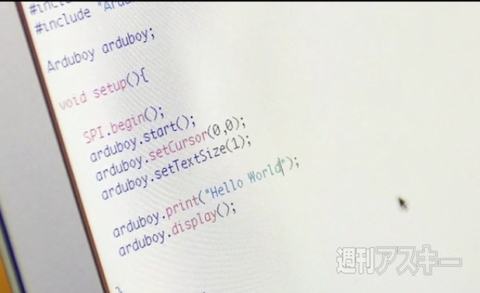 #include
#include "Ardu
Arduboy arduboy;
void setup(){
SPI.begin();
arduboy.start();
arduboy.setCursor(0,0);
arduboy.setTextSize(1);
arduboy.print("Hello World");
arduboy.display();
}
週刊アスキー